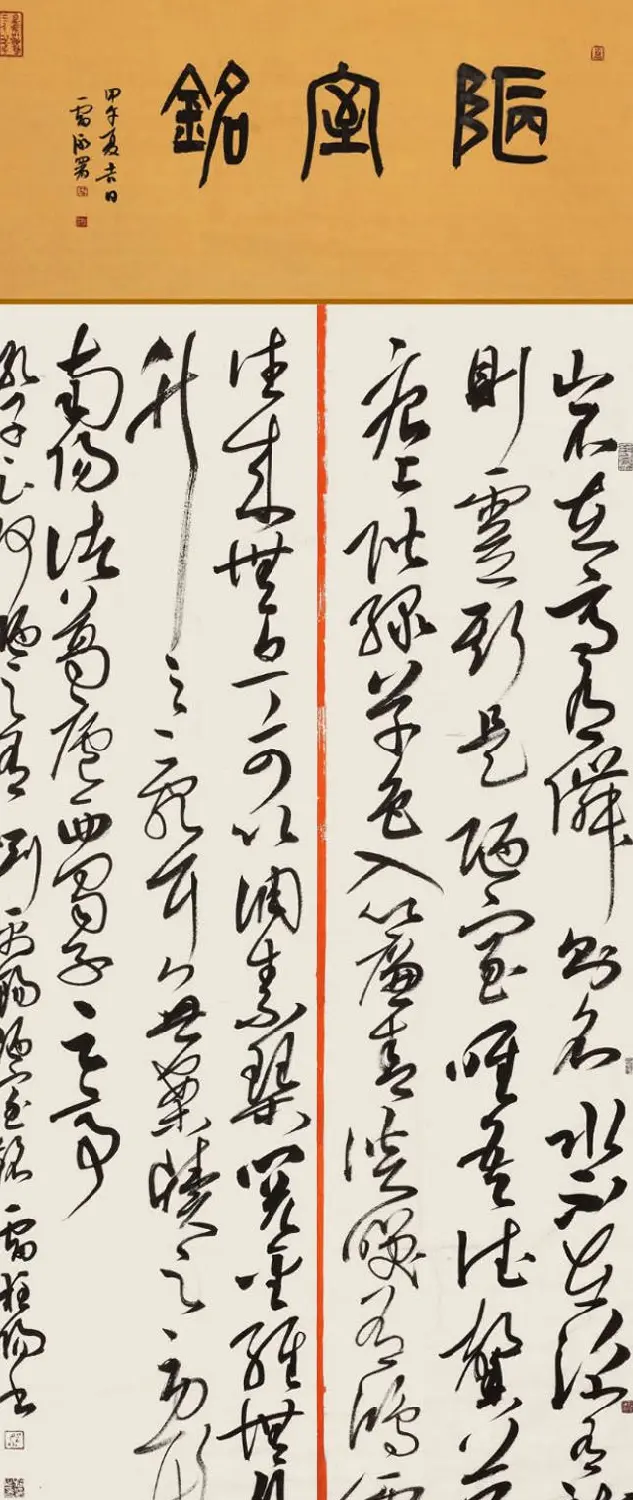 陋室銘
甲午夏吉日
雷署
山不在高有僊則名水不在深有
則靈斯是陋室唯吾德馨苔
痕上階綠草色入簾青談咲有鴻
往來無白丁可以調素琴閱金經無
竹之亂耳無案牘之勞形
南陽諸葛廬西蜀子雲亭
孔子云何陋之有 劉禹錫陋室銘 雷陽书